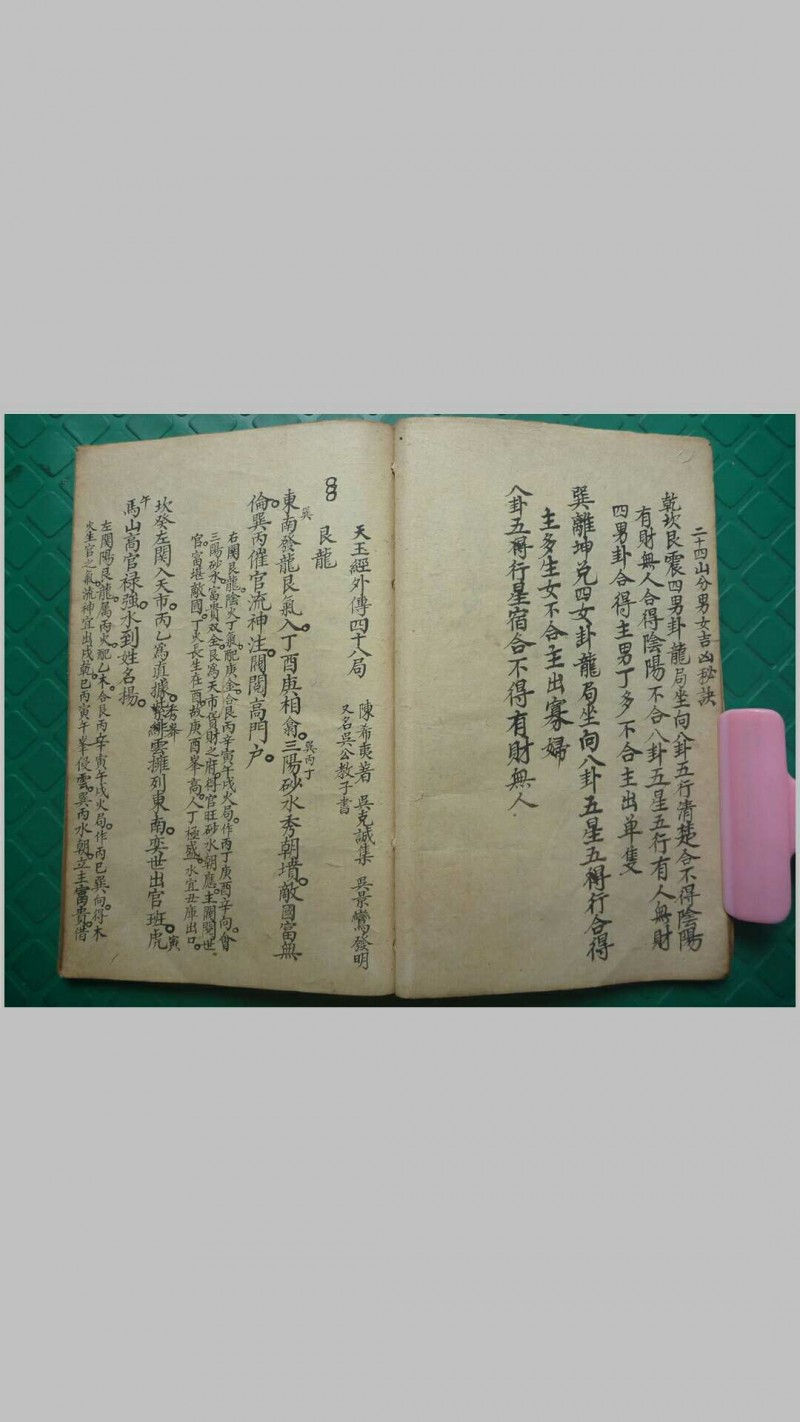 二十四山分男女吉凶秘訣
乾坎艮震四男卦龍局坐向八卦五行清楚合不得陰陽
有財無人合得陰陽不合八卦五星五行有人無財
四男卦合得主男丁多不合主出单隻
巽離坤兑四女卦龍局坐向八卦五星五得行合得
主多生女不合主出寡婦
八卦五得行星宿合不得有財無人
天玉經外傳四十八局 陳希夷著 吳克誠集 吳景鸞發明
又名吳公教子書
艮龍
巽
巽丙丁
東南發龍艮氣入丁酉庚相翕三陽砂水秀朝堦敵國富無
倫巽丙催官流神注閥閱高門户
右関艮龍陰火丁氣配庚金合艮丙辛寅午戌火局作丙丁庚酉辛向會
三陽砂水富貴双全艮為天市貨財之府得官旺砂水朝應主閥閱世
官富堪敵國丁火長生在酉故庚酉峯高人丁極盛水宜丑庫出口
坎癸左関入天市丙乙爲真據秀峯紫緋雲擁列東南奕世出官班虎
寅
午
馬山高官禄強水到姓名揚
左関陽艮龍属丙火配乙木合艮丙辛寅午戌火局作丙巳巽向得木
火生官之氣流神宜出戌乾巳丙寅午峯侵雲巽丙水朝立主富貴借